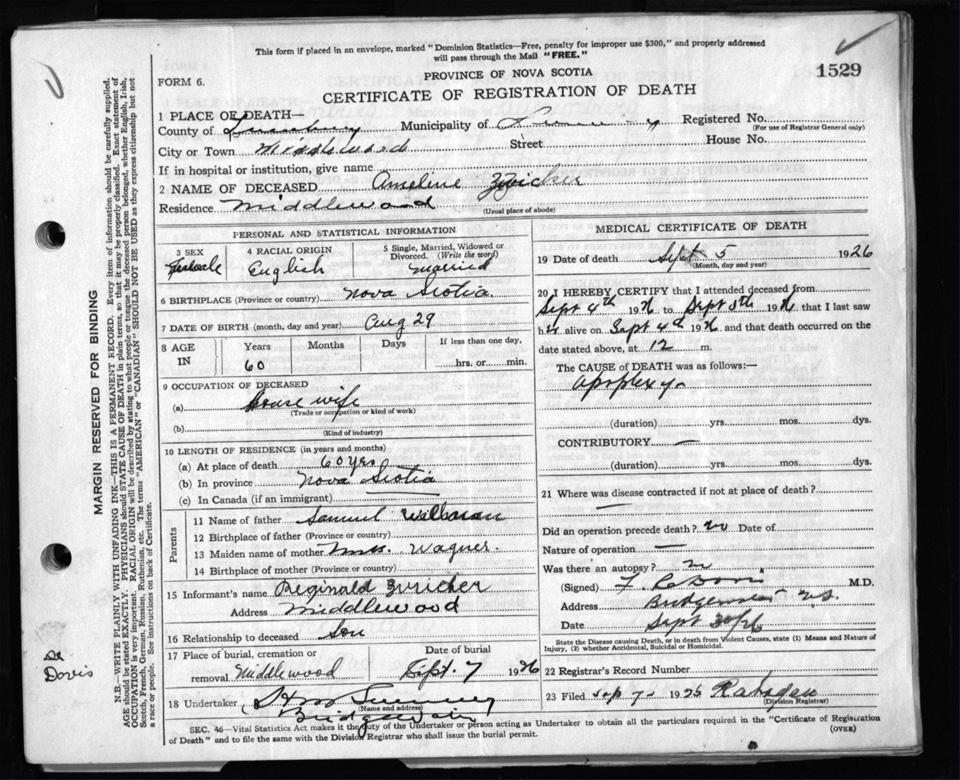 This form if placed in an envelope, marked "Dominion Statistics—Free, penalty for improper use $300," and properly addressed
will pass through the Mail "FREE."
FORM 6.
PROVINCE OF NOVA SCOTIA
1529
CERTIFICATE OF REGISTRATION OF DEATH
1 PLACE OF DEATH—
County of Lunenburg Municipality of Registered No.
(For use of Registrar General only)
City or Town Middlewood Street House No.
If in hospital or institution, give name
2 NAME OF DECEASED Ameline Zwicker
Residence Middlewood
(Usual place of abode)
PERSONAL AND STATISTICAL INFORMATION
3 SEX 4 RACIAL ORIGIN 5 Single, Married, Widowed or
Divorced. (Write the word)
Female English married
6 BIRTHPLACE (Province or country) Nova Scotia
7 DATE OF BIRTH (month, day and year) Aug 29
8 AGE IN Years Months Days If less than one day,
60 hrs. or min.
9 OCCUPATION OF DECEASED
(a) House wife
(Trade or occupation or kind of work)
(b)
(Kind of industry)
10 LENGTH OF RESIDENCE (in years and months)
(a) At place of death 60 yrs
(b) In province Nova Scotia
(c) In Canada (if an immigrant)
Parents
11 Name of father Samuel
12 Birthplace of father (Province or country)
13 Maiden name of mother Wagner.
14 Birthplace of mother (Province or country)
15 Informant's name Reginald Zwicker
Address Middlewood
16 Relationship to deceased Son
17 Place of burial, cremation or Date of burial
removal Middlewood Sept. 7 1926
18 Undertaker
(Name and address)
Bridgewater
MEDICAL CERTIFICATE OF DEATH
19 Date of death Sept 5 1926
(Month, day and year)
20 I HEREBY CERTIFY that I attended deceased from
Sept 4th 1926 to Sept 5th 1926 that I last saw
her alive on Sept 4th 1926 and that death occurred on the
date stated above, at 12 m.
The CAUSE of DEATH was as follows:—
Apoplexy
(duration) yrs. mos. dys.
CONTRIBUTORY —
(duration) yrs. mos. dys.
21 Where was disease contracted if not at place of death?
—
Did an operation precede death? no Date of
Nature of operation —
Was there an autopsy? no
(Signed) M.D.
Address Bridgewater N.S.
Date Sept
State the Disease causing Death, or in death from Violent Causes, state (1) Means and Nature of
Injury, (2) whether Accidental, Suicidal or Homicidal.
22 Registrar's Record Number
23 Filed Sep 7 192
(Division Registrar)
SEC. 46—Vital Statistics Act makes it the duty of the Undertaker or person acting as Undertaker to obtain all the particulars required in the "Certificate of Registration
of Death" and to file the same with the Division Registrar who shall issue the burial permit. (OVER)
MARGIN RESERVED FOR BINDING
N.B.—WRITE PLAINLY WITH UNFADING INK—THIS IS A PERMANENT RECORD. Every item of information should be carefully supplied.
AGE should be stated EXACTLY. PHYSICIANS should STATE CAUSE OF DEATH in plain terms, so that it may be properly classified. Exact statement of
OCCUPATION is very important. RACIAL ORIGIN will be described by stating to what people or tongue the deceased person belonged, whether English, Irish,
Scotch, French, German, Russian, Ruthenian, etc. The terms "AMERICAN" or "CANADIAN" SHOULD NOT BE USED as they express citizenship but not
a race or people. See instructions on back of Certificate.
Dr
Davis